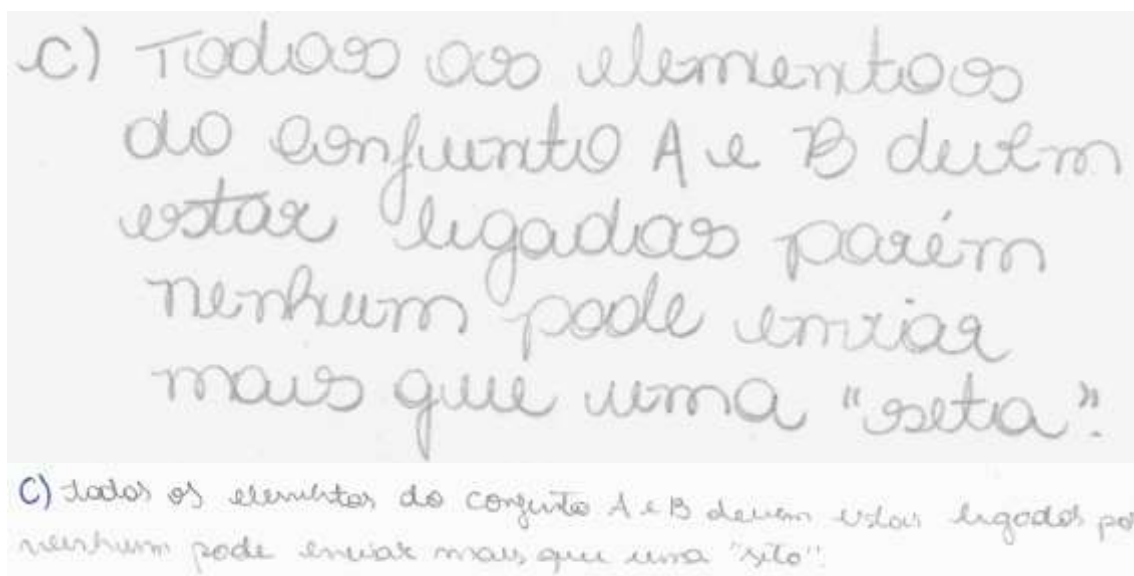 c) Todos os elementos
do conjunto A e B devem
estar ligados porém
nenhum pode enviar
mais que uma "seta".
C) todos os elementos do conjunto A e B devem estar ligados
nenhum pode enviar mais que uma "seta".